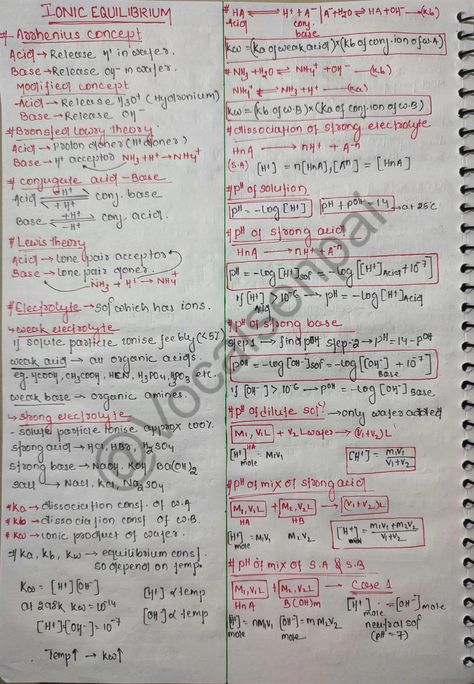 IONIC EQUILIBRIUM
# Arrhenius concept
Acid → Release H⁺ in water.
Base → Release OH⁻ in water
Modified concept
Acid → Release H3O⁺ (Hydronium)
Base → Release OH⁻
# Bronsted lowry theory
Acid → Proton donor (H⁺ doner)
Base → H⁺ acceptor NH3 + H⁺ → NH4⁺
# conjugate acid-Base
Acid ⇌ conj. base
-H⁺
+H⁺
Base ⇌ conj. acid.
+H⁺
-H⁺
# Lewis theory
Acid → lone pair acceptor
Base → lone pair doner.
NH3 + H⁺ → NH4⁺
# Electrolyte → solⁿ which has ions.
→ weak electrolyte
if solute particle ionise feebly (<5%)
weak acid → all organic acids.
eg. HCOOH, CH3COOH, HCN, H3PO4, H3PO3 etc
weak base → organic amines.
→ strong electrolyte
- solute particle ionise approx 100%
strong acid → HCl, HBr, H2SO4
strong base → NaOH, KOH, Ba(OH)2
salt → NaCl, KCl, Na2SO4
* Ka → dissociation const. of W.A
* Kb → dissociation const of W.B.
* Kw → ionic product of water.
# Ka, Kb, Kw → equilibrium const
so depend on temp.
Kw = [H⁺][OH⁻]
[H⁺] ∝ temp
at 298K Kw = 10⁻¹⁴
[OH⁻] ∝ temp
[H⁺]=[OH⁻] = 10⁻⁷
Temp↑ → Kw↑
# HA ⇌ H⁺ + A⁻ | A⁻ + H2O ⇌ HA + OH⁻ → (Kb)
Acid conj. base
Kw = (Ka of weak acid) × (Kb of conj. ion of W.A)
# NH3 + H2O ⇌ NH4⁺ + OH⁻ → (Kb)
NH4⁺ ⇌ NH3 + H⁺ → (Ka)
Kw = (Kb of W.B) × (Ka of conj. ion of W.B)
# dissociation of strong electrolyte
HnA → nH⁺ + A⁻ⁿ
(S.A) [H⁺] = n[HnA], [Aⁿ⁻] = [HnA]
# pH of solution
pH = -log[H⁺] pH + pOH = 14 → at 25°C
# pH of strong acid
HnA → nH⁺ + A⁻ⁿ
pH = -log[H⁺]sol = -log([H⁺]Acid + 10⁻⁷)
if [H⁺]Acid > 10⁻⁶ → pH = -log[H⁺]Acid
# pH of strong base
step 1 → find pOH step-2 → pH = 14 - pOH
pOH = -log[OH⁻]sol = -log([OH⁻]Base + 10⁻⁷)
if [OH⁻] > 10⁻⁶ → pOH = -log[OH⁻]Base
# pH of dilute solⁿ → only water added
M1, V1 L + V2 L water → (V1+V2)L
HA
[H⁺]mole = M1V1 [H⁺] = M1V1/V1+V2
# pH of mix of strong acid
M1, V1 L + M2, V2 L → (V1+V2)L
HA HB
[H⁺]mole = M1V1 M2V2 [H⁺] = M1V1+M2V2/V1+V2
# pH of mix of S.A & S.B
M1, V1 L + M2, V2 L → Case 1
HnA B(OH)m [H⁺]mole = [OH⁻]mole
[H⁺]mole = nM1V1 [OH⁻]mole = mM2V2 neutral sol
(pH = 7)
@vocalsenpai